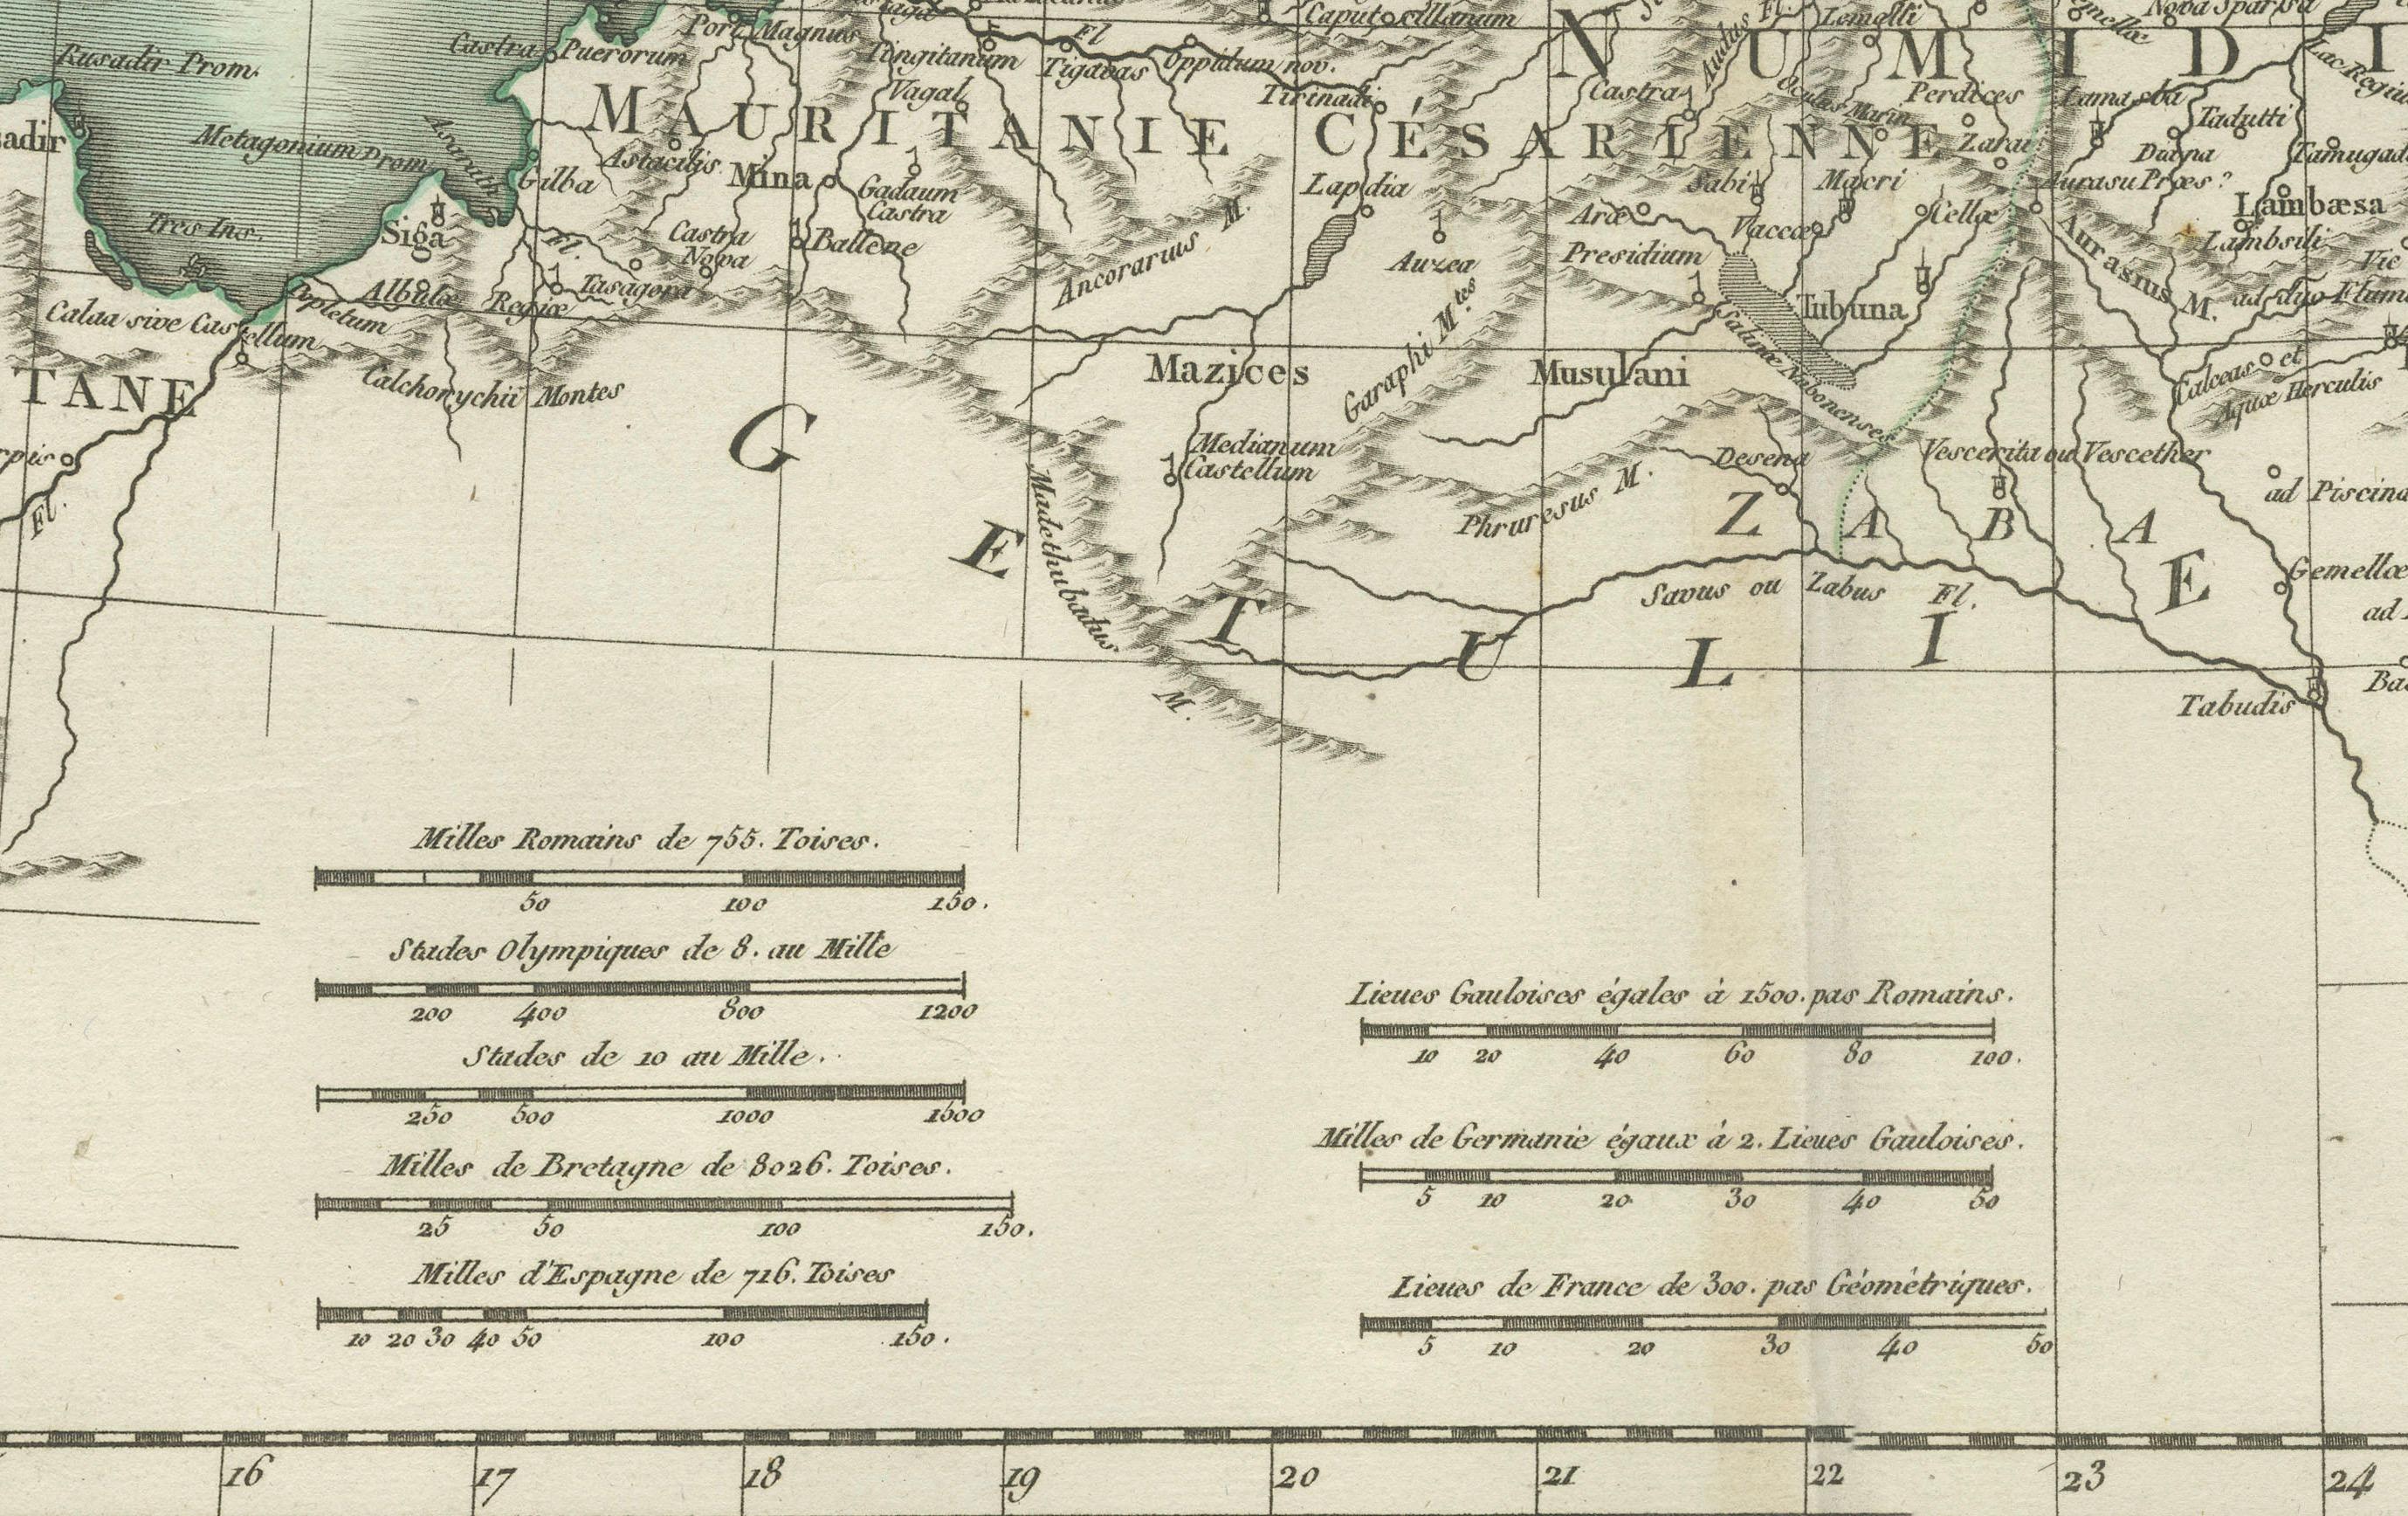 Caput cillanum
Lemelli
Nova Sparsa
Port. Magnus
Fl
Audus Fl.
Rusadir Prom.
Castra Puerorum
Tingitanum
Tigavas
Oppidum nov.
NUMIDI
Lac Regius
Vagal
Tirinadi
Castra
Oculus Marin
Perdices
Lamasba
Tadutti
MAURITANIE CÉSARIENNE
Metagonium Prom.
Asarath
Astacilis
Zarai
Diana
Tamugad
adir
Gilba
Mina
Gadaum
Castra
Lapdia
Sabi
Macri
Aurasu Præs?
Tres Ins.
Siga
Fl.
Castra
Nova
Ballene
Ancorarius M.
Auzea
Aræ
Vaccæ
Cellæ
Lambæsa
Lambsili
Presidium
Aurasius M.
Vic
Popletum
Albulæ
Regiæ
Tasagora
Tubuna
ad duo Flum
Calaa sive Castellum
Salinæ Nubonenses
TANE
Calchorychii Montes
Mazices
Garaphi M.tes
Musulani
Calceas et
Aquæ Herculis
GETULIE
rpis
Fl.
Medianum
Castellum
Desena
Vescerita ou Vescether
Phruresus M.
ad Piscina
ZABA
Madethubadus M.
Savus ou Zabus Fl.
Gemellæ
ad
Tabudis
Ba
Milles Romains de 755. Toises.
50 100 150.
Stades Olympiques de 8. au Mille
200 400 800 1200
Stades de 10 au Mille.
250 500 1000 1500
Milles de Bretagne de 8026. Toises.
25 50 100 150.
Milles d'Espagne de 716. Toises
10 20 30 40 50 100 150.
Lieues Gauloises égales à 1500. pas Romains.
10 20 40 60 80 100.
Milles de Germanie égaux à 2. Lieues Gauloises.
5 10 20 30 40 50
Lieues de France de 300. pas Géométriques.
5 10 20 30 40 50
16 17 18 19 20 21 22 23 24